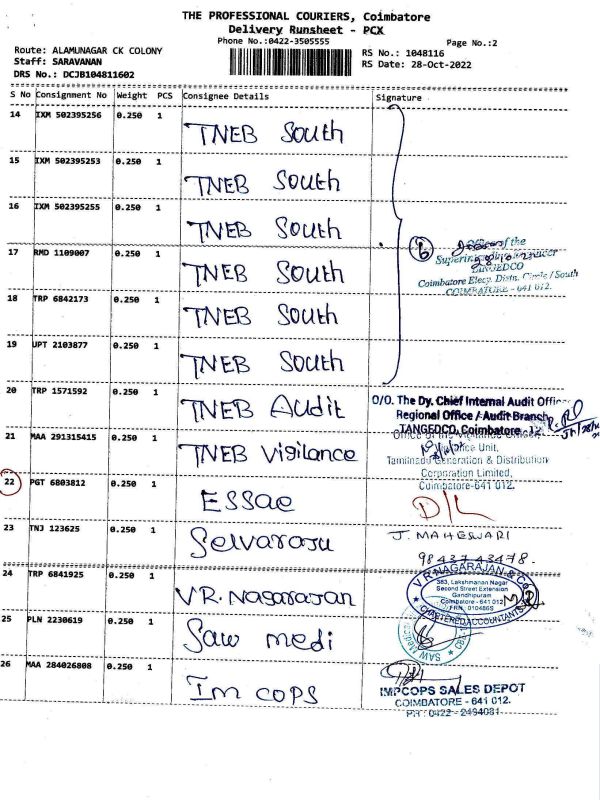 THE PROFESSIONAL COURIERS, Coimbatore
Delivery Runsheet - PCX
Phone No.:0422-3505555
Page No.:2
Route: ALAMUNAGAR CK COLONY
RS No.: 1048116
Staff: SARAVANAN
RS Date: 28-Oct-2022
DRS No.: DCJB104811602
S No Consignment No Weight PCS Consignee Details Signature
14 IXM 502395256 0.250 1 TNEB South
15 IXM 502395253 0.250 1 TNEB South
16 IXM 502395255 0.250 1 TNEB South
17 RMD 1109007 0.250 1 TNEB South
Office of the
TANGEDCO
Coimbatore Elecy. Distn. Circle / South
COIMBATORE - 641 012.
18 TRP 6842173 0.250 1 TNEB South
19 UPT 2103877 0.250 1 TNEB South
20 TRP 1571592 0.250 1 TNEB Audit
O/O. The Dy. Chief Internal Audit Officer
Regional Office / Audit Branch
TANGEDCO, Coimbatore - 12.
21 MAA 291315415 0.250 1 TNEB Vigilance
Office of the Vigilance
Vigilance Unit,
Tamilnadu Generation & Distribution
Corporation Limited,
Coimbatore-641 012.
22 PGT 6803812 0.250 1 ESSae
D/L
23 TNJ 123625 0.250 1 Selvaraju
J. MAHESWARI
98437 43478.
24 TRP 6841925 0.250 1 V.R. Nagarajan
V.R. NAGARAJAN & Co.
383, Lakshmanan Nagar
Second Street Extension
Gandhipuram
Coimbatore - 641 012
FRN : 010486S
CHARTERED ACCOUNTANTS
25 PLN 2230619 0.250 1 Saw medi
26 MAA 284026808 0.250 1 Im cops
IMPCOPS SALES DEPOT
COIMBATORE - 641 012.
PH : 0422 - 2494081